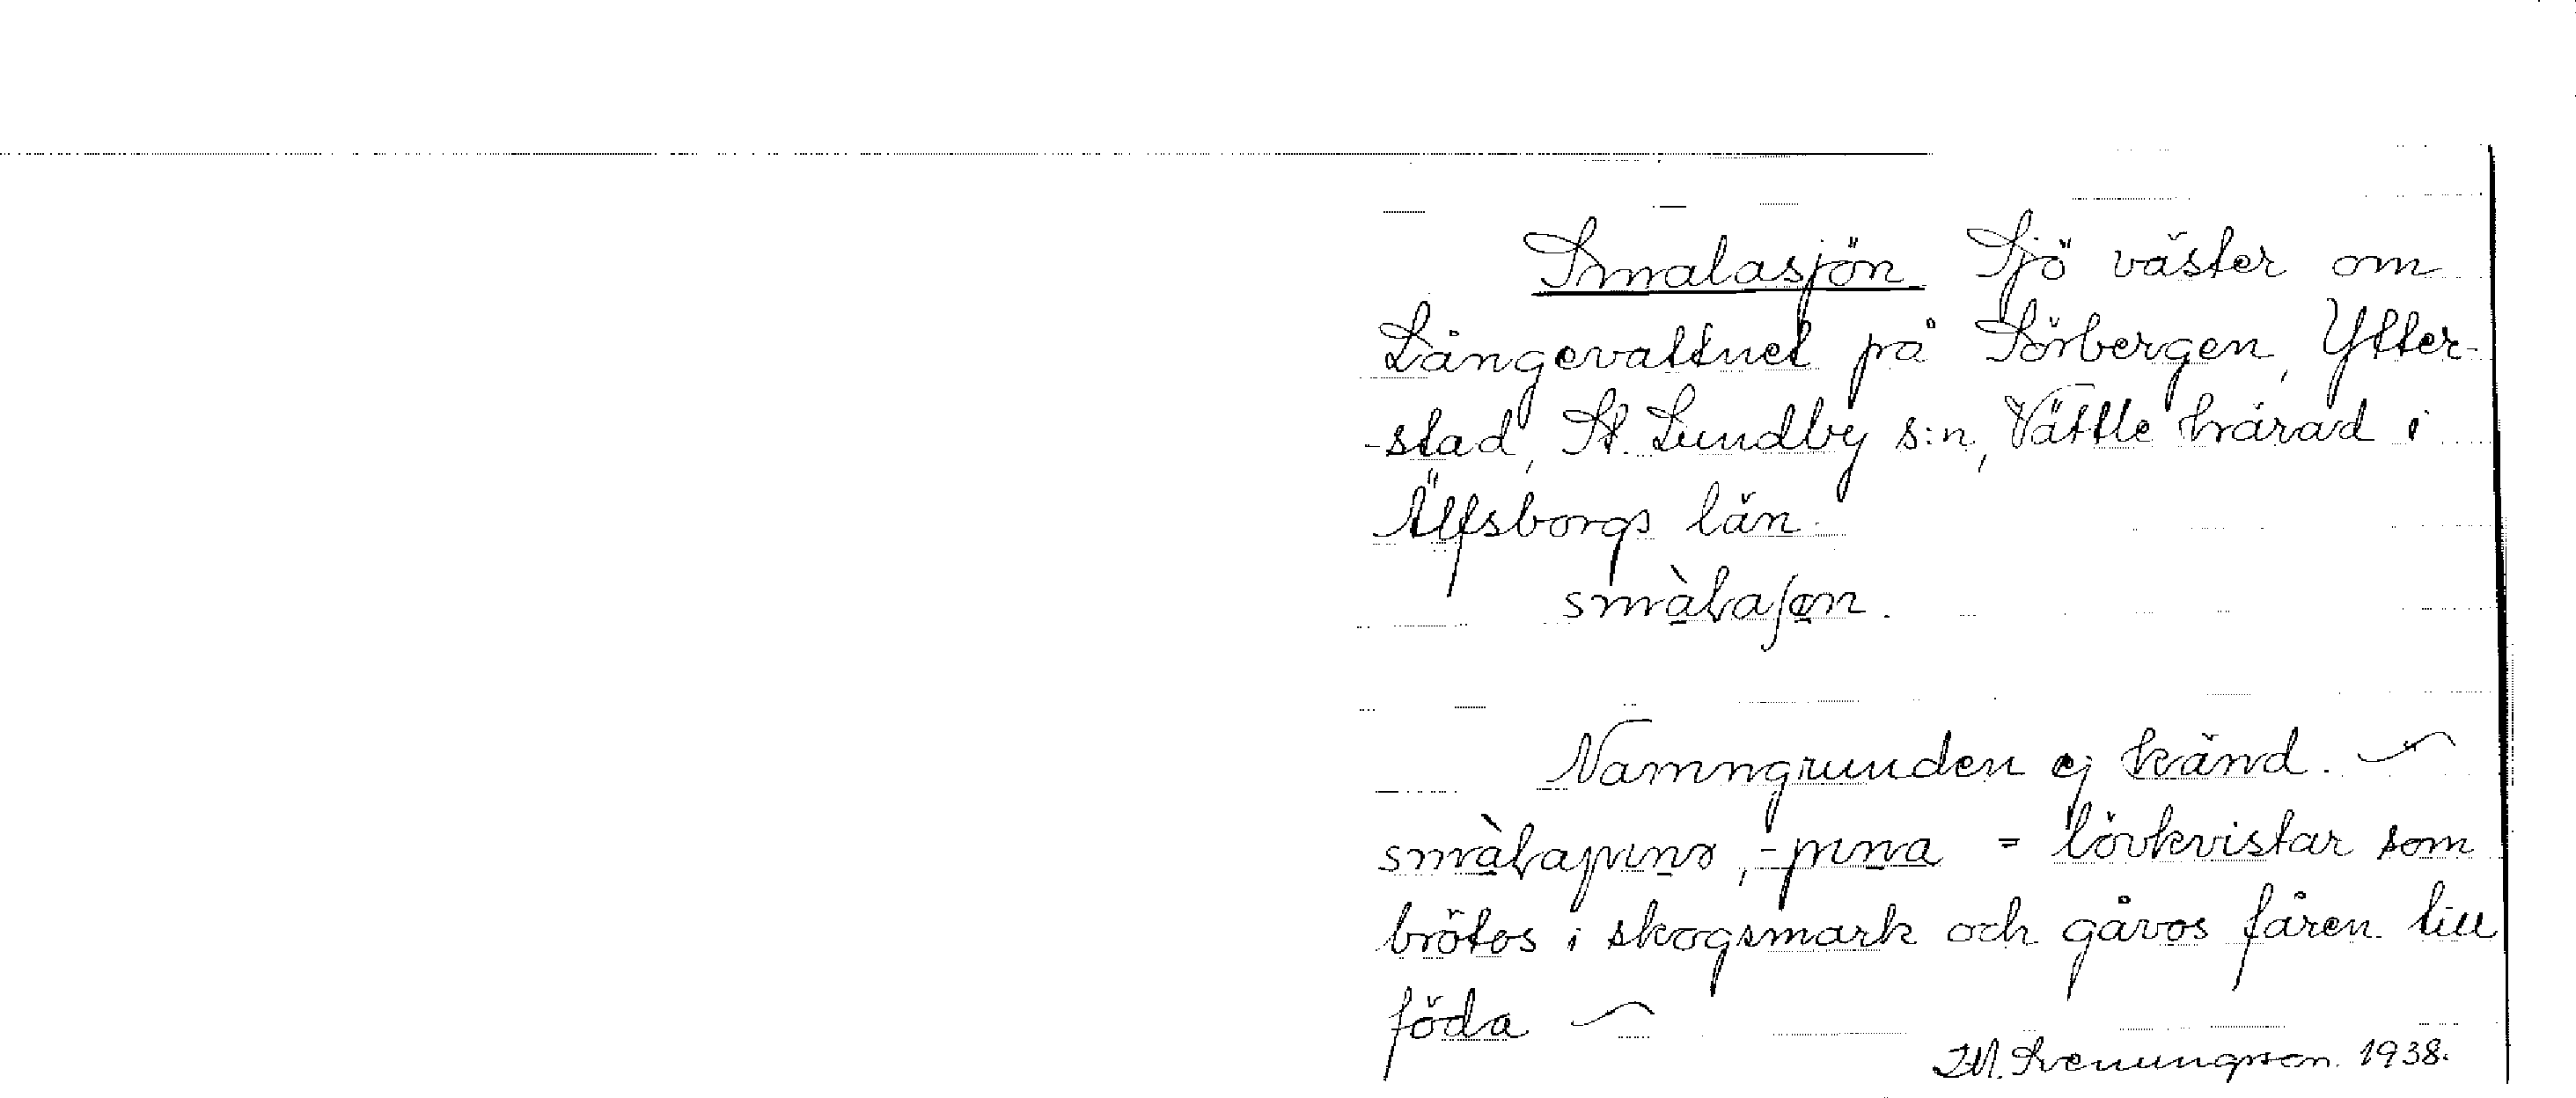 Smalasjön Sjö väster om
Långevattnet på Sörbergen, Ytter-
-stad, St. Lundby s:n, Vättle härad i
Älfsborgs län.
smàlaʃøn.
Namngrunden ej känd. ~
smàlapinɷ, -pina = lövkvistar som
brötos i skogsmark och gåvos fåren till
föda ~
I.M. Svenungsson. 1938.